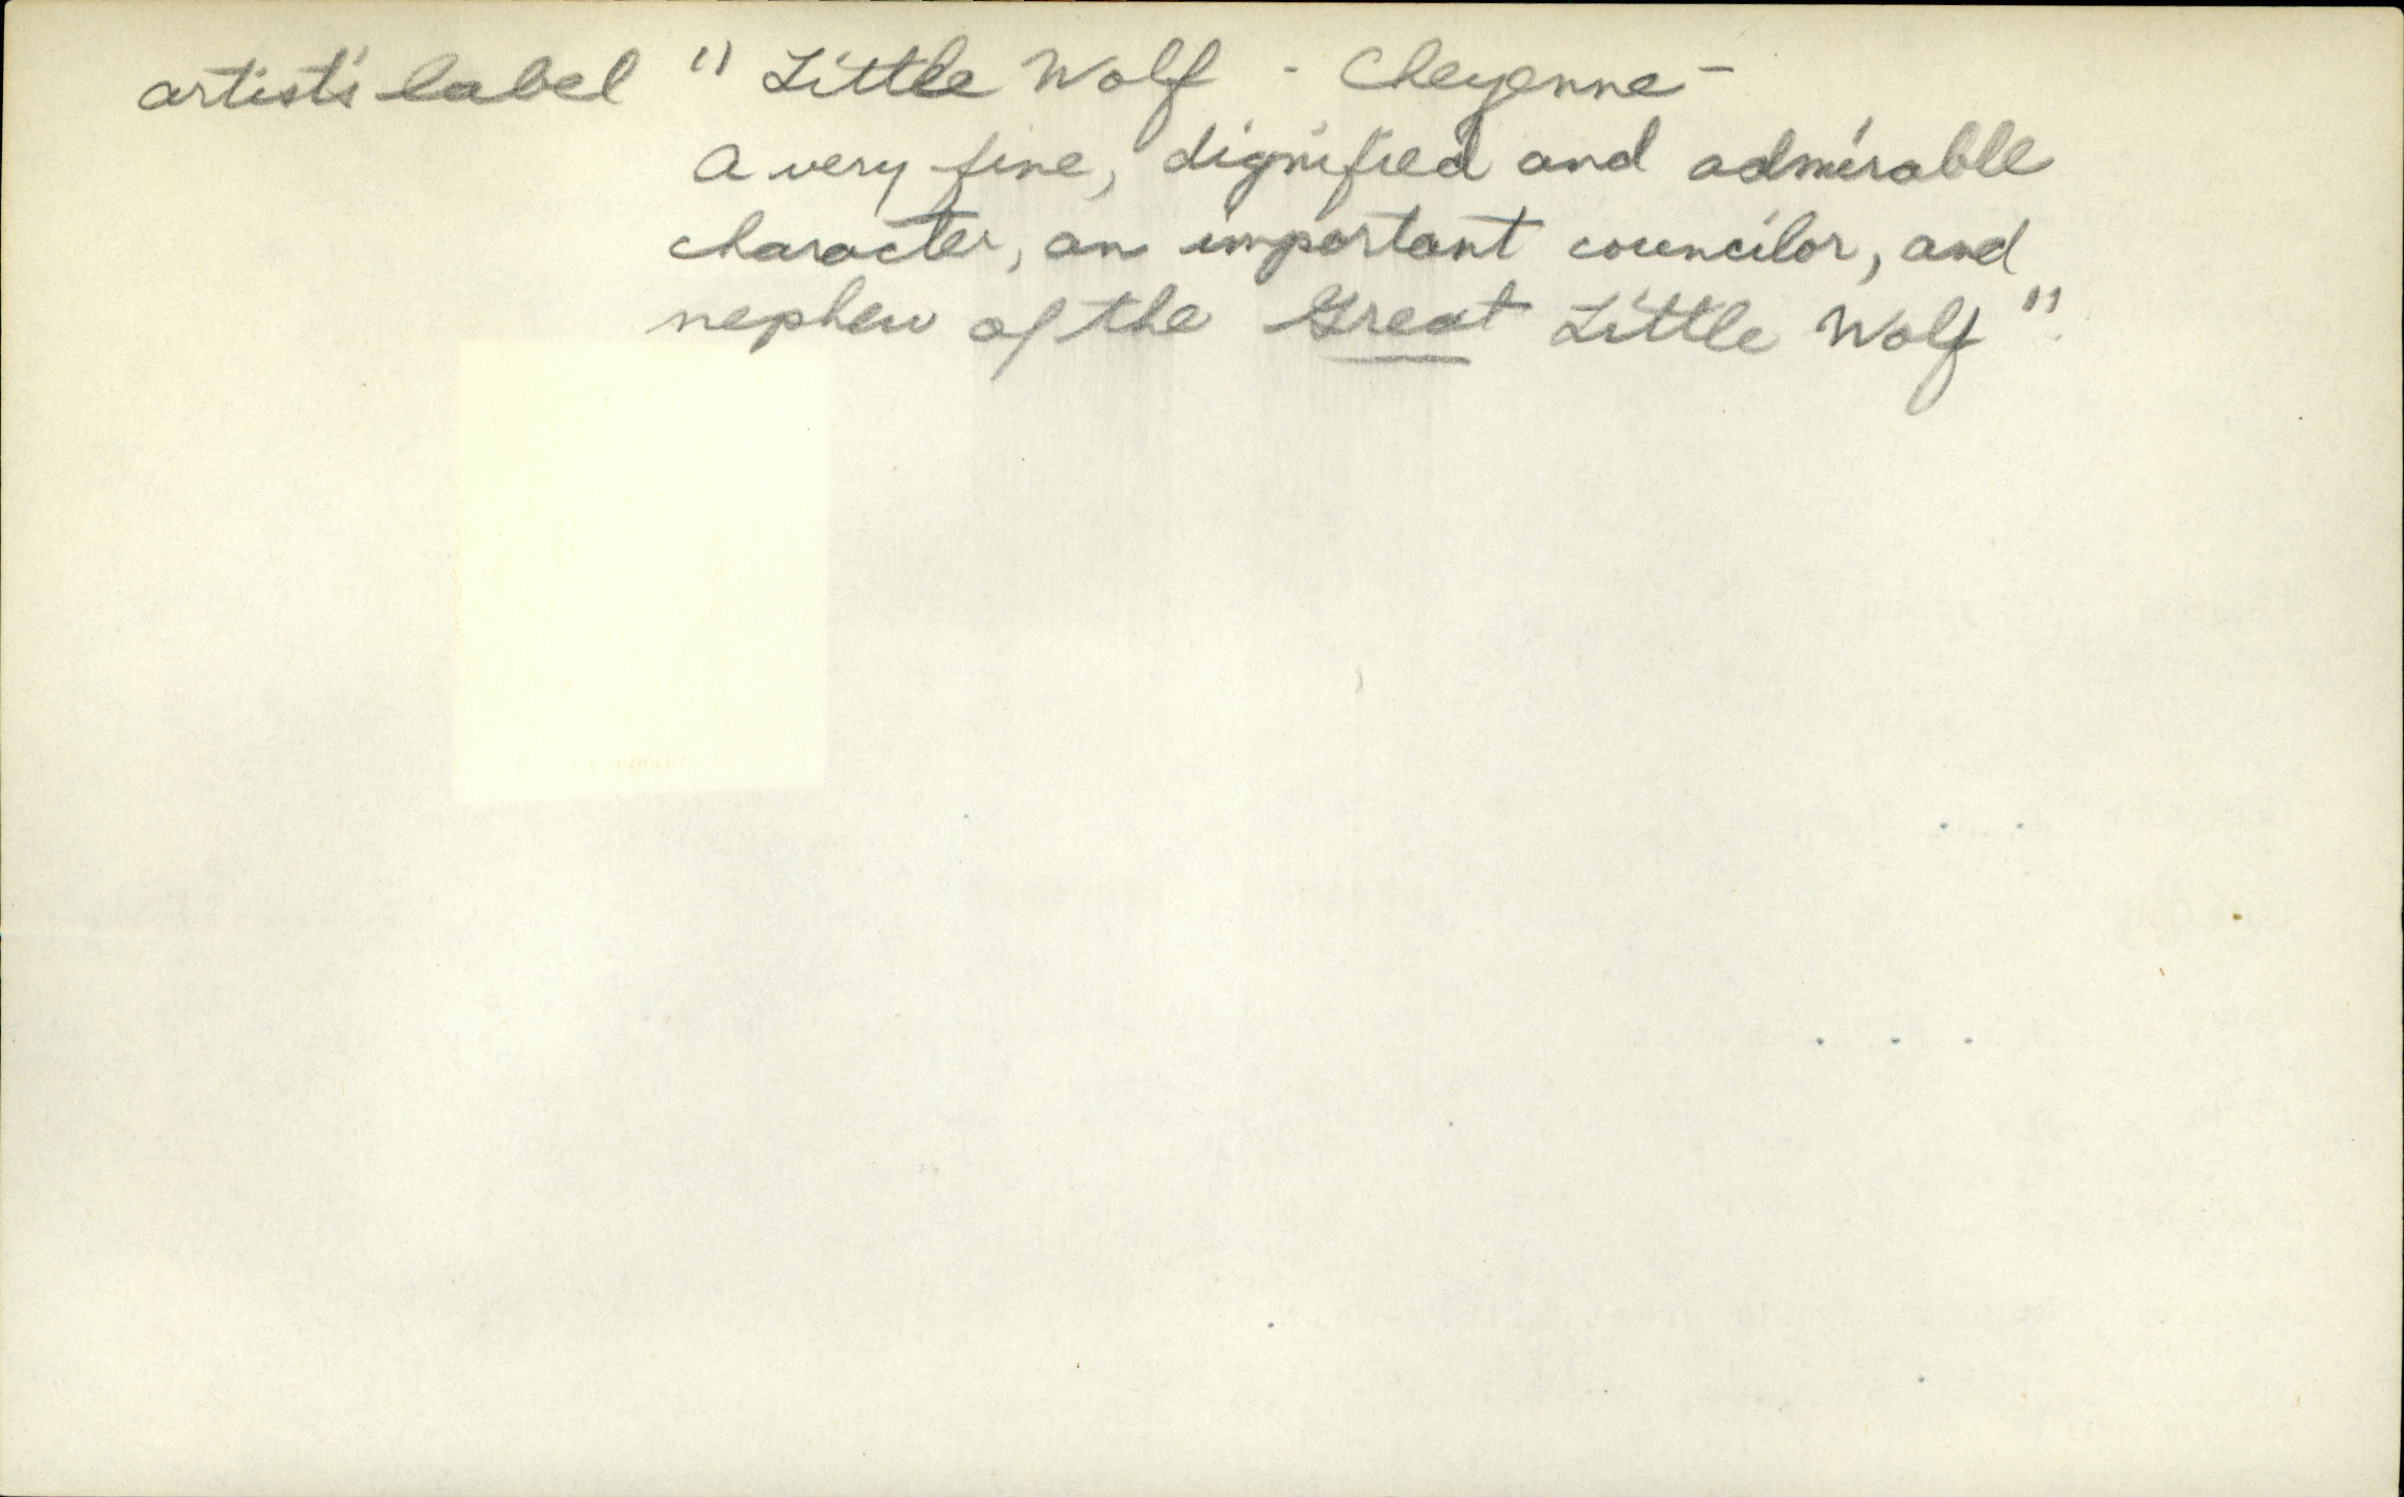 artist's label " Little Wolf - Cheyenne -
A very fine, dignified and admirable
character, an important councilor, and
nephew of the Great Little Wolf".